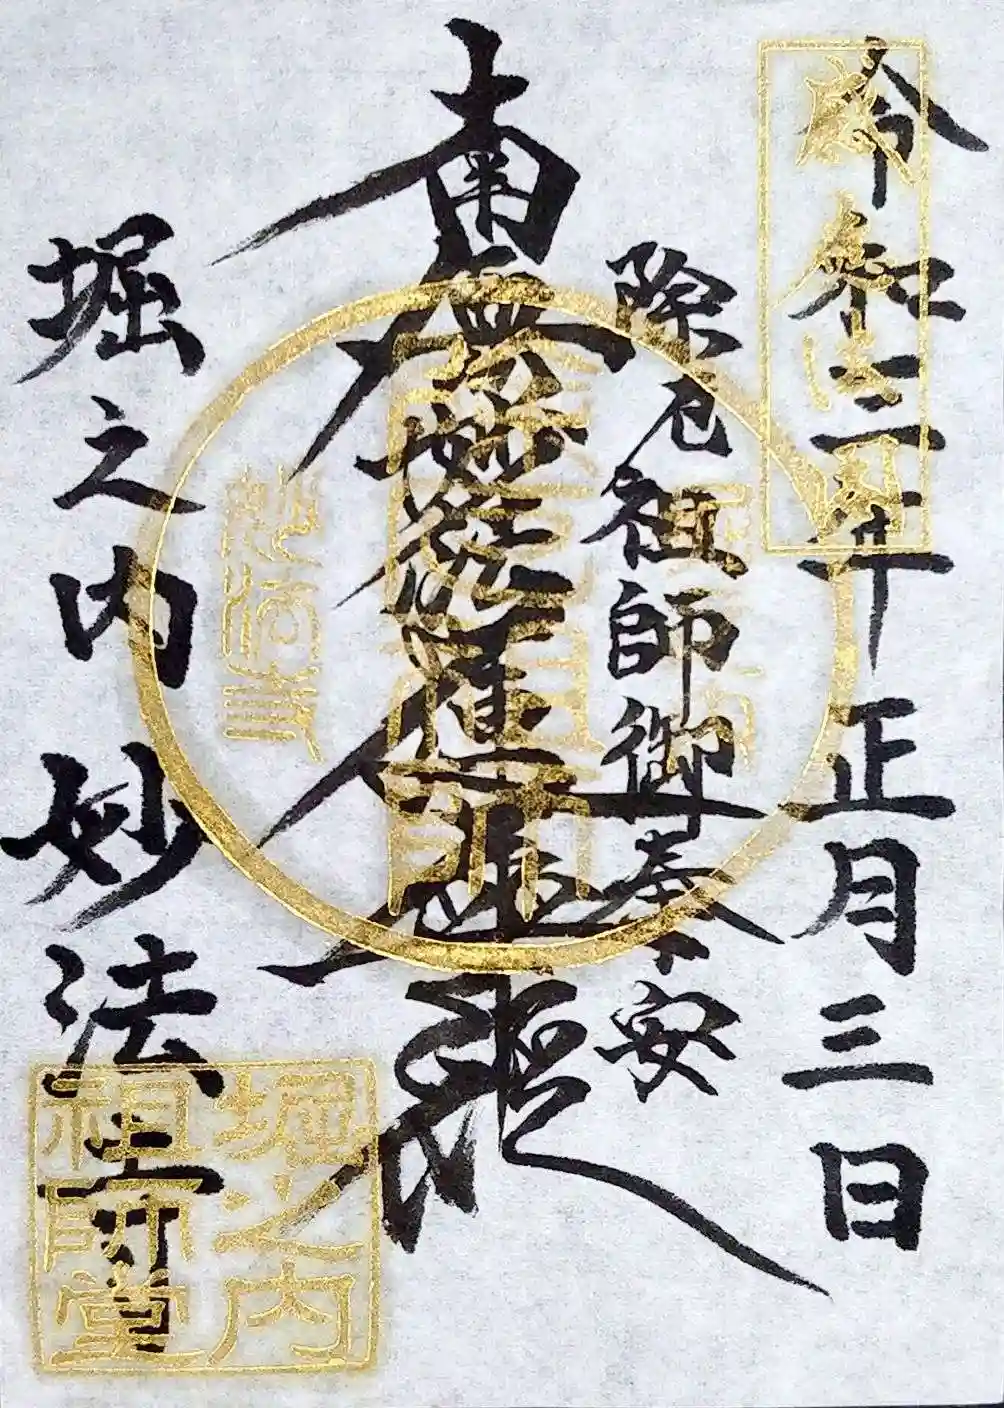 令和三年正月三日
除厄祖師御奉安
南無妙法蓮華経
堀之内妙法寺
除厄祖師
妙法寺
堀之内
祖師堂